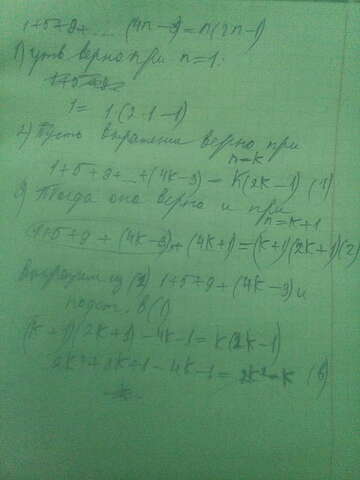 1+5+9+... (4n-3)=n(2n-1)
1) утв верно при n=1.
1= 1(2·1-1)
2) Пусть выражение верно при n=k
1+5+9+...+(4k-3) = k(2k-1) (1)
3) Тогда оно верно и при n=k+1
(1+5+9+(4k-3)+(4k+1)=(k+1)(2k+1)(2)
Выразим из (2) 1+5+9+(4k-3) и
подст. в (1)
(k+1)(2k+1)-4k-1=k(2k-1)
2k²+3k+1-4k-1=2k²-k (в)